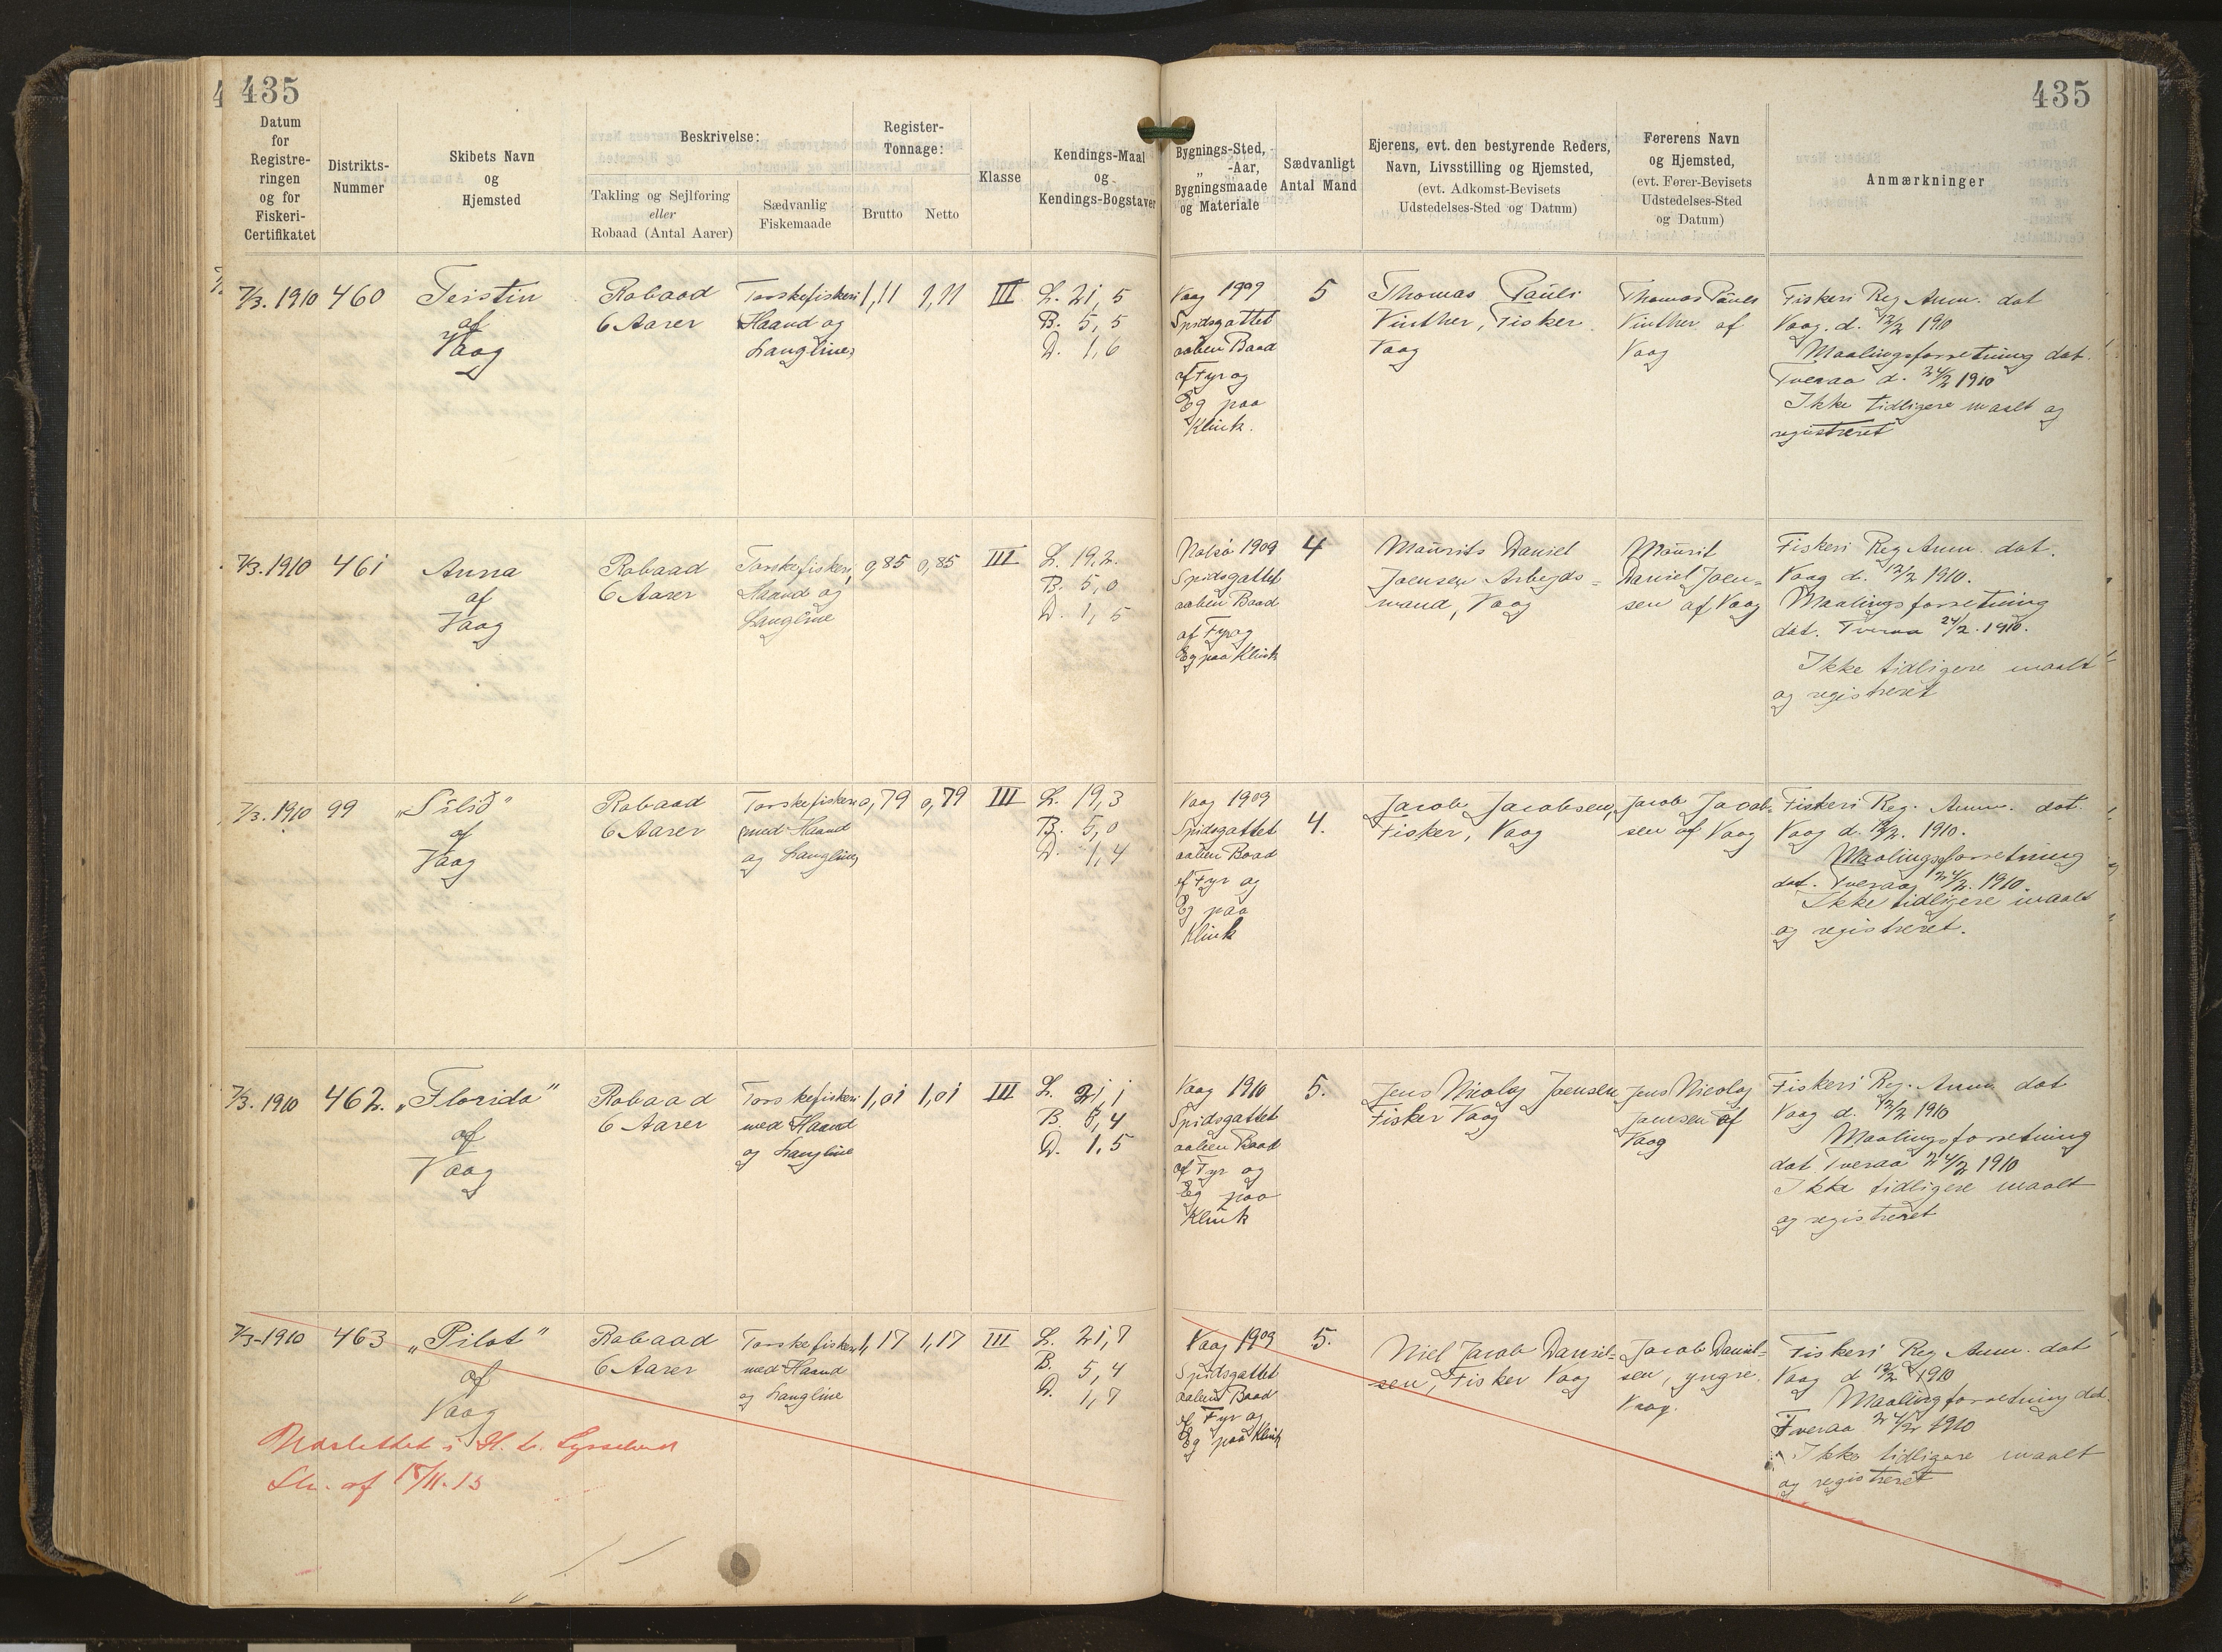 435
435
Datum for Registreringen og for Fiskeri-Certifikatet
Distrikts-Nummer
Skibets Navn og Hjemsted
Beskrivelse:
Takling og Sejlføring eller Robaad (Antal Aarer)
Sædvanlig Fiskemaade
Register-Tonnage:
Brutto
Netto
Klasse
Kendings-Maal og Kendings-Bogstaver
Bygnings-Sted, „ -Aar, Bygningsmaade og Materiale
Sædvanligt Antal Mand
Ejerens, evt. den bestyrende Reders, Navn, Livsstilling og Hjemsted, (evt. Adkomst-Bevisets Udstedelses-Sted og Datum)
Førerens Navn og Hjemsted, (evt. Fører-Bevisets Udstedelses-Sted og Datum)
Anmærkninger
7/3. 1910
460
Teistin
af
Vaag
Robaad
6 Aarer
Torskefiskeri
Haand og
Langline
1,11
1,11
III
L. 21,5
B. 5,5
D. 1,6
Vaag 1909
Spidsgattet
aaben Baad
af Fyr og
Eg paa
Klink.
5
Thomas Pauli
Vinther, Fisker
Vaag
Thomas Pauli
Vinther af
Vaag
Fiskeri Reg Anm. dat
Vaag. d. 12/2 1910
Maalingsforretning dat.
Tveraa d. 24/2 1910
Ikke tidligere maalt og
registreret
7/3. 1910
461
Anna
af
Vaag
Robaad
6 Aarer
Torskefiskeri
Haand og
Langline
0,85
0,85
III
L. 19,2.
B. 5,0
D. 1,5
Nolsø 1909
Spidsgattet
aaben Baad
af Fyr og
Eg paa Klink
4
Maurits Daniel
Joensen Arbejds-
mand, Vaag
Maurit
Daniel Joen-
sen af Vaag
Fiskeri Reg Anm. dat.
Vaag d. 12/2 1910.
Maalingsforretning
dat. Tveraa 24/2. 1910.
Ikke tidligere maalt
og registreret
7/3. 1910
99
„Silið"
af
Vaag
Robaad
6 Aarer
Torskefiskeri
med Haand
og Langline
0,79
0,79
III
L. 19,3
B. 5,0
D. 1,4
Vaag 1909
Spidsgattet
aaben Baad
af Fyr og
Eg paa
Klink
4.
Jacob Jacobsen,
Fisker, Vaag
Jacob Jacob-
sen af Vaag
Fiskeri Reg. Anm. dat.
Vaag d. 12/2. 1910.
Maalingsforretning
dat. Tveraa 24/2. 1910.
Ikke tidligere maalt
og registreret.
7/3. 1910
462.
„Florida"
af
Vaag
Robaad
6 Aarer
Torskefiskeri
med Haand
og Langline
1,01
1,01
III
L. 21,1
B. 5,4
D. 1,5
Vaag 1910
Spidsgattet
aaben Baad
af Fyr og
Eg paa
Klink
5.
Jens Nicolaj Joensen
Fisker Vaag
Jens Nicolaj
Joensen af
Vaag
Fiskeri Reg. Anm. dat
Vaag d. 12/2 1910
Maalingsforretning
dat Tveraa 24/2 1910
Ikke tidligere maalt
og registreret
7/3-1910
463
„Pilot"
af
Vaag
Robaad
6 Aarer
Torskefiskeri
med Haand
og Langline
1,17
1,17
III
L. 21,7
B. 5,4
D. 1,7
Vaag 1909
Spidsgattet
aaben Baad
af Fyr og
Eg paa Klink
5.
Niel Jacob Daniel-
sen, Fisker Vaag
Jacob Daniel-
sen, yngre.
Vaag.
Fiskeri Reg Anm. dat
Vaag d 12/2 1910
Maalingforretning dat.
Tveraa 24/2 1910
Ikke tidligere maalt
og registreret
Udslettet i H. t.
af